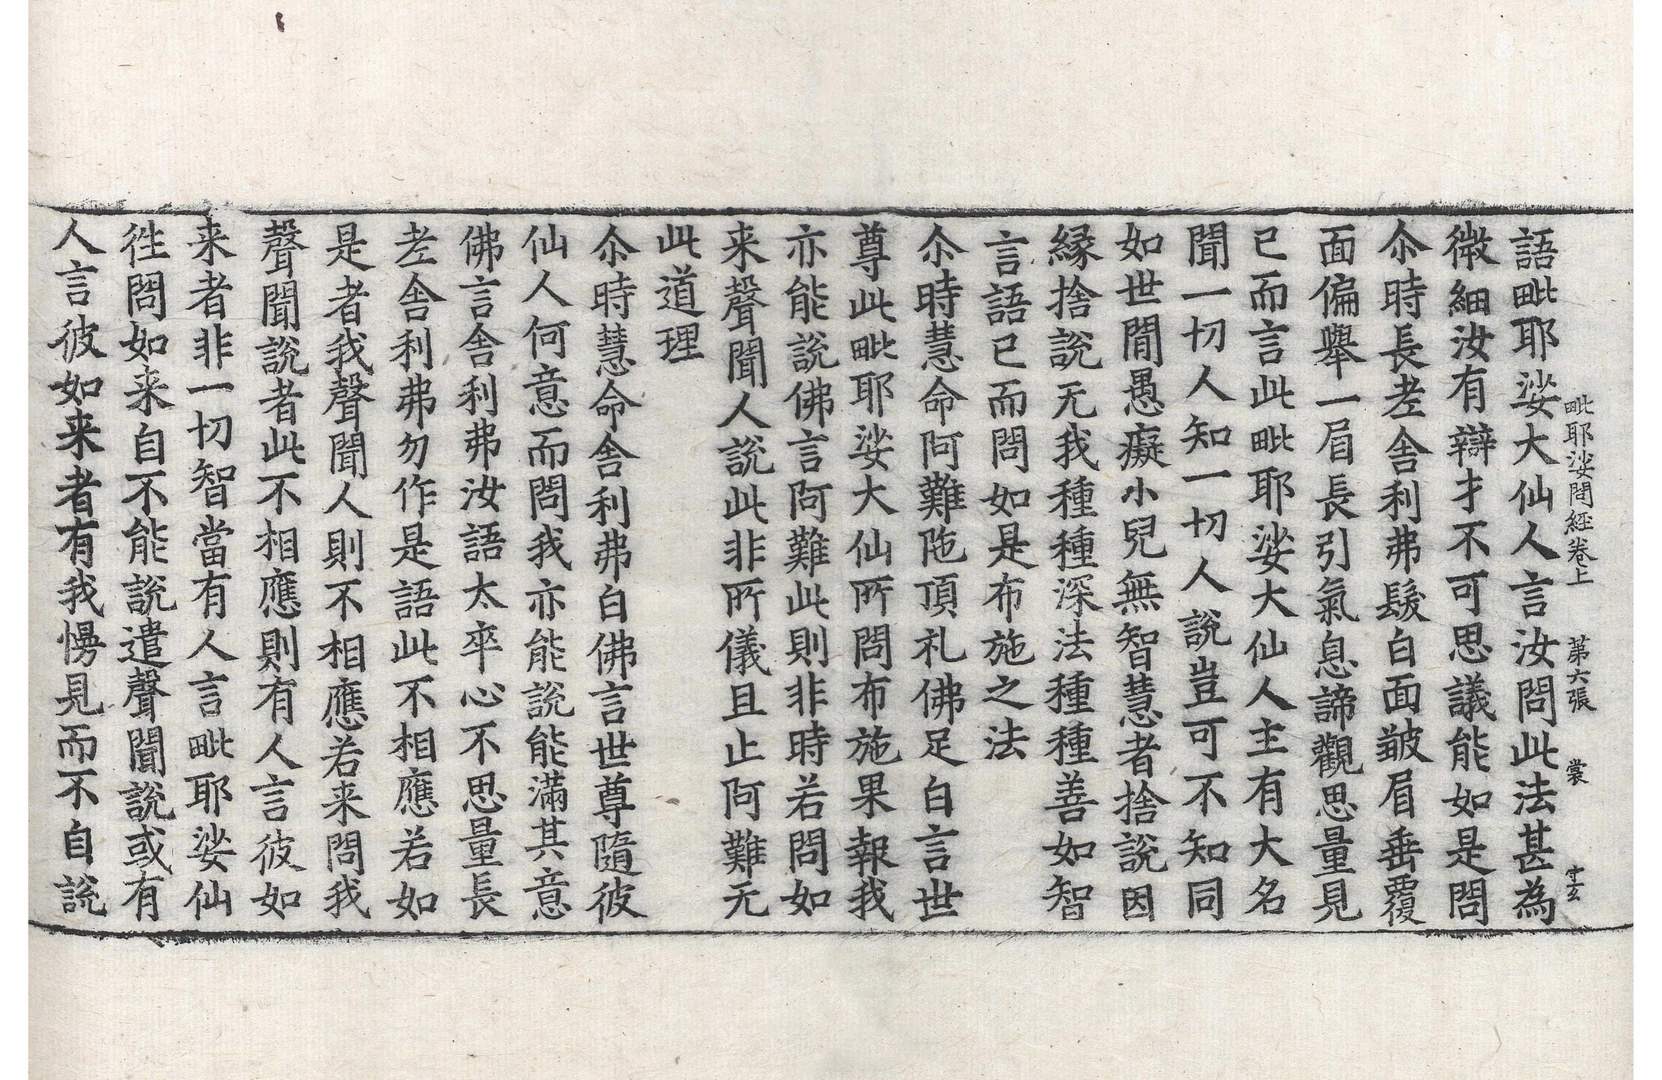 毗耶娑問經卷上　第六張　裳　守玄
語毗耶娑大仙人言汝問此法甚為
微細汝有辯才不可思議能如是問
尒時長老舍利弗髮白面皺眉垂覆
面偏舉一眉長引氣息諦觀思量見
已而言此毗耶娑大仙人主有大名
聞一切人知一切人說豈可不知同
如世閒愚癡小兒無智慧者捨說因
緣捨說无我種種深法種種善如智
言語已而問如是布施之法
尒時慧命阿難陁頂礼佛足白言世
尊此毗耶娑大仙所問布施果報我
亦能說佛言阿難此則非時若問如
来聲聞人說此非所儀且止阿難无
此道理
尒時慧命舍利弗白佛言世尊隨彼
仙人何意而問我亦能說能滿其意
佛言舍利弗汝語太卒心不思量長
老舍利弗勿作是語此不相應若如
是者我聲聞人則不相應若来問我
聲聞說者此不相應則有人言彼如
来者非一切智當有人言毗耶娑仙
徃問如来自不能說遣聲聞說或有
人言彼如来者有我慢見而不自說